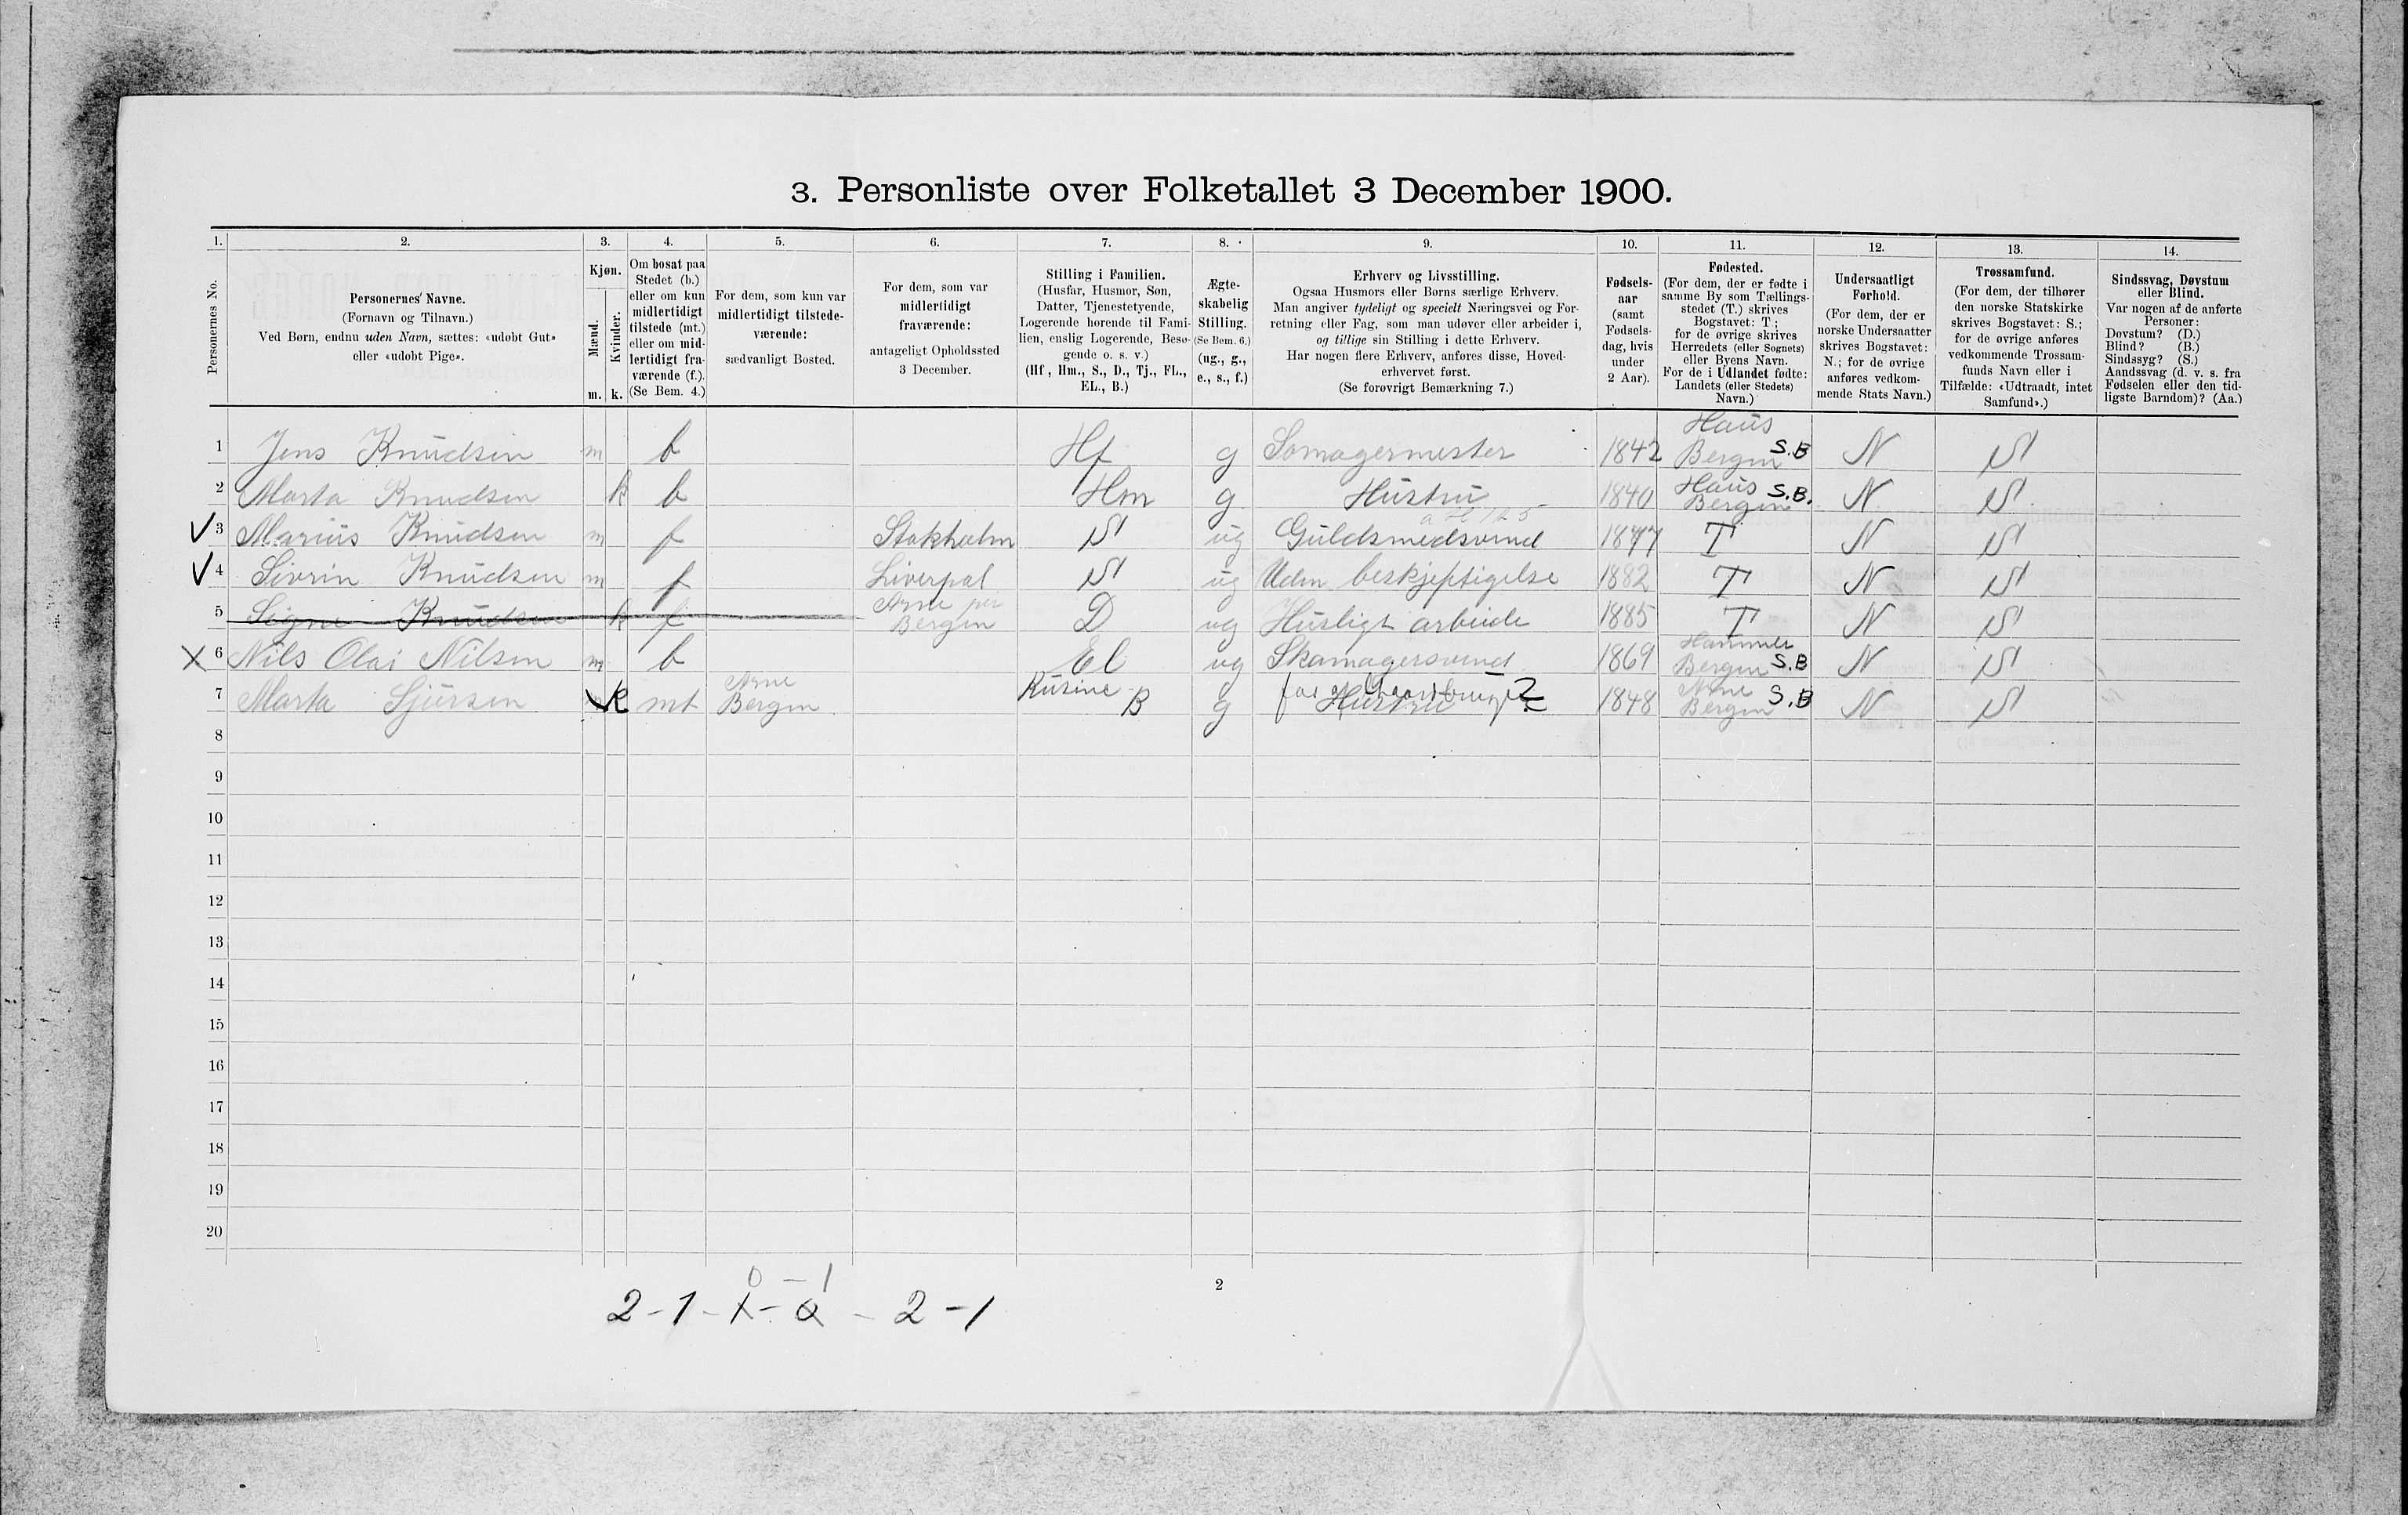 3. Personliste over Folketallet 3 December 1900.
1. 2. 3. 4. 5. 6. 7. 8. 9. 10. 11. 12. 13. 14.
Personernes No.
Personernes Navne.
(Fornavn og Tilnavn.)
Ved Børn, endnu uden Navn, sættes: «udøbt Gut»
eller «udøbt Pige».
Kjøn.
Mænd.
Kvinder.
m. k.
Om bosat paa
Stedet (b.)
eller om kun
midlertidigt
tilstede (mt.)
eller om mid-
lertidigt fra-
værende (f.).
(Se Bem. 4.)
For dem, som kun var
midlertidigt tilstede-
værende:
sædvanligt Bosted.
For dem, som var
midlertidigt
fraværende:
antageligt Opholdssted
3 December.
Stilling i Familien.
(Husfar, Husmor, Søn,
Datter, Tjenestetyende,
Logerende hørende til Fami-
lien, enslig Logerende, Besø-
gende o. s. v.)
(Hf, Hm., S., D., Tj., FL.,
EL., B.)
Ægte-
skabelig
Stilling.
(Se Bem. 6.)
(ug., g.,
e., s., f.)
Erhverv og Livsstilling.
Ogsaa Husmors eller Børns særlige Erhverv.
Man angiver tydeligt og specielt Næringsvei og For-
retning eller Fag, som man udøver eller arbeider i,
og tillige sin Stilling i dette Erhverv.
Har nogen flere Erhverv, anføres disse, Hoved-
erhvervet først.
(Se forøvrigt Bemærkning 7.)
Fødsels-
aar
(samt
Fødsels-
dag, hvis
under
2 Aar).
Fødested.
(For dem, der er fødte i
samme By som Tællings-
stedet (T.) skrives
Bogstavet: T;
for de øvrige skrives
Herredets (eller Sognets)
eller Byens Navn.
For de i Udlandet fødte:
Landets (eller Stedets)
Navn.)
Undersaatligt
Forhold.
(For dem, der er
norske Undersaatter
skrives Bogstavet:
N.; for de øvrige
anføres vedkom-
mende Stats Navn.)
Trossamfund.
(For dem, der tilhører
den norske Statskirke
skrives Bogstavet: S.;
for de øvrige anføres
vedkommende Trossam-
funds Navn eller i
Tilfælde: «Udtraadt, intet
Samfund».)
Sindssvag, Døvstum
eller Blind.
Var nogen af de anførte
Personer:
Døvstum? (D.)
Blind? (B.)
Sindssyg? (S.)
Aandssvag (d. v. s. fra
Fødselen eller den tid-
ligste Barndom)? (Aa.)
1 Jens Knudsen m b Hf g Somagermester 1842 Haus Bergen S.B N S
2 Marta Knudsen k b Hm g Hustru 1840 Haus Bergen S.B. N S
3 Marius Knudsen m f Stokholm S ug Guldsmedsvend 1877 T N S
4 Sivrin Knudsen m f Liverpol S ug Uden beskjeftigelse 1882 T N S
5 Signe Knudsen k f Arne per Bergen D ug Husligt arbeide 1885 T N S
6 Nils Olai Nilsen m b El ug Skomagersvend 1869 Hammer Bergen S.B N S
7 Marta Sjursen k mt Arne Bergen Kusine B g Hustru 1848 Arne Bergen S.B N S
8
9
10
11
12
13
14
15
16
17
18
19
20
0 - 1
2 - 1 - 1 - 0 - 2 - 1
2